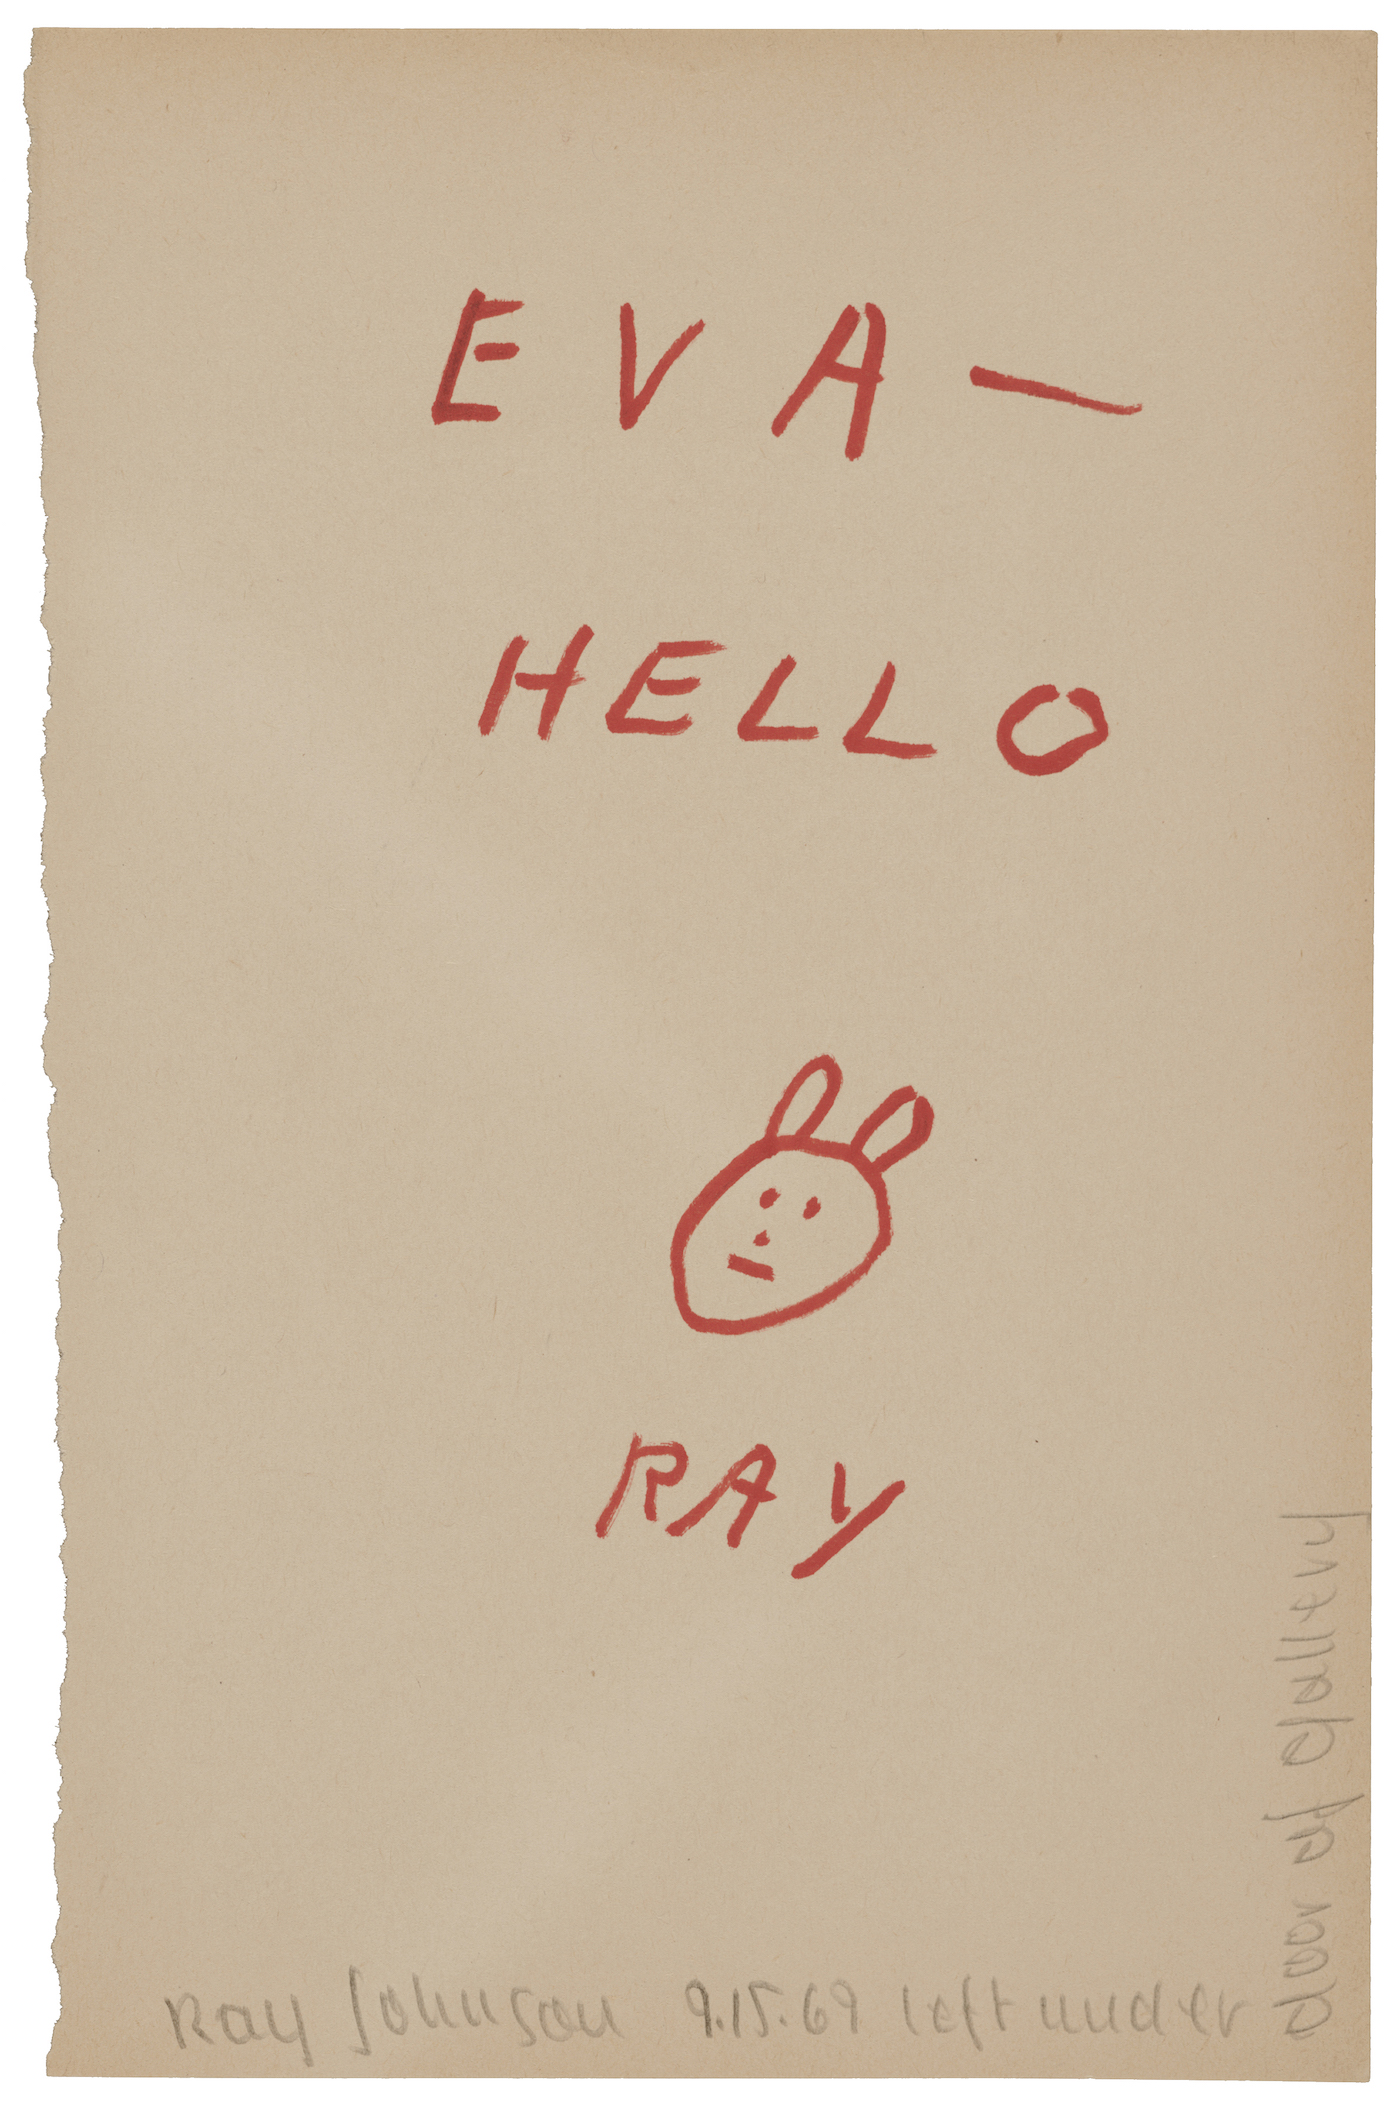 EVA—
HELLO
RAY
Ray Johnson 9.15.69 left under
door of Gallery